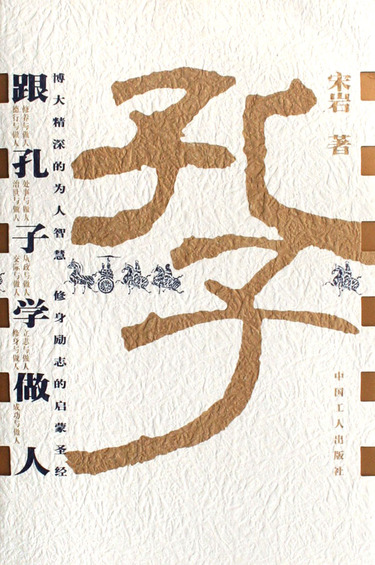 跟孔子学做人
德行与做人
交际与做人
修身与做人
修养与做人
处事与做人
从政与做人
立志与做人
成功与做人
博大精深的为人智慧 修身励志的启蒙圣经
孔子
宋岩 著
中国工人出版社